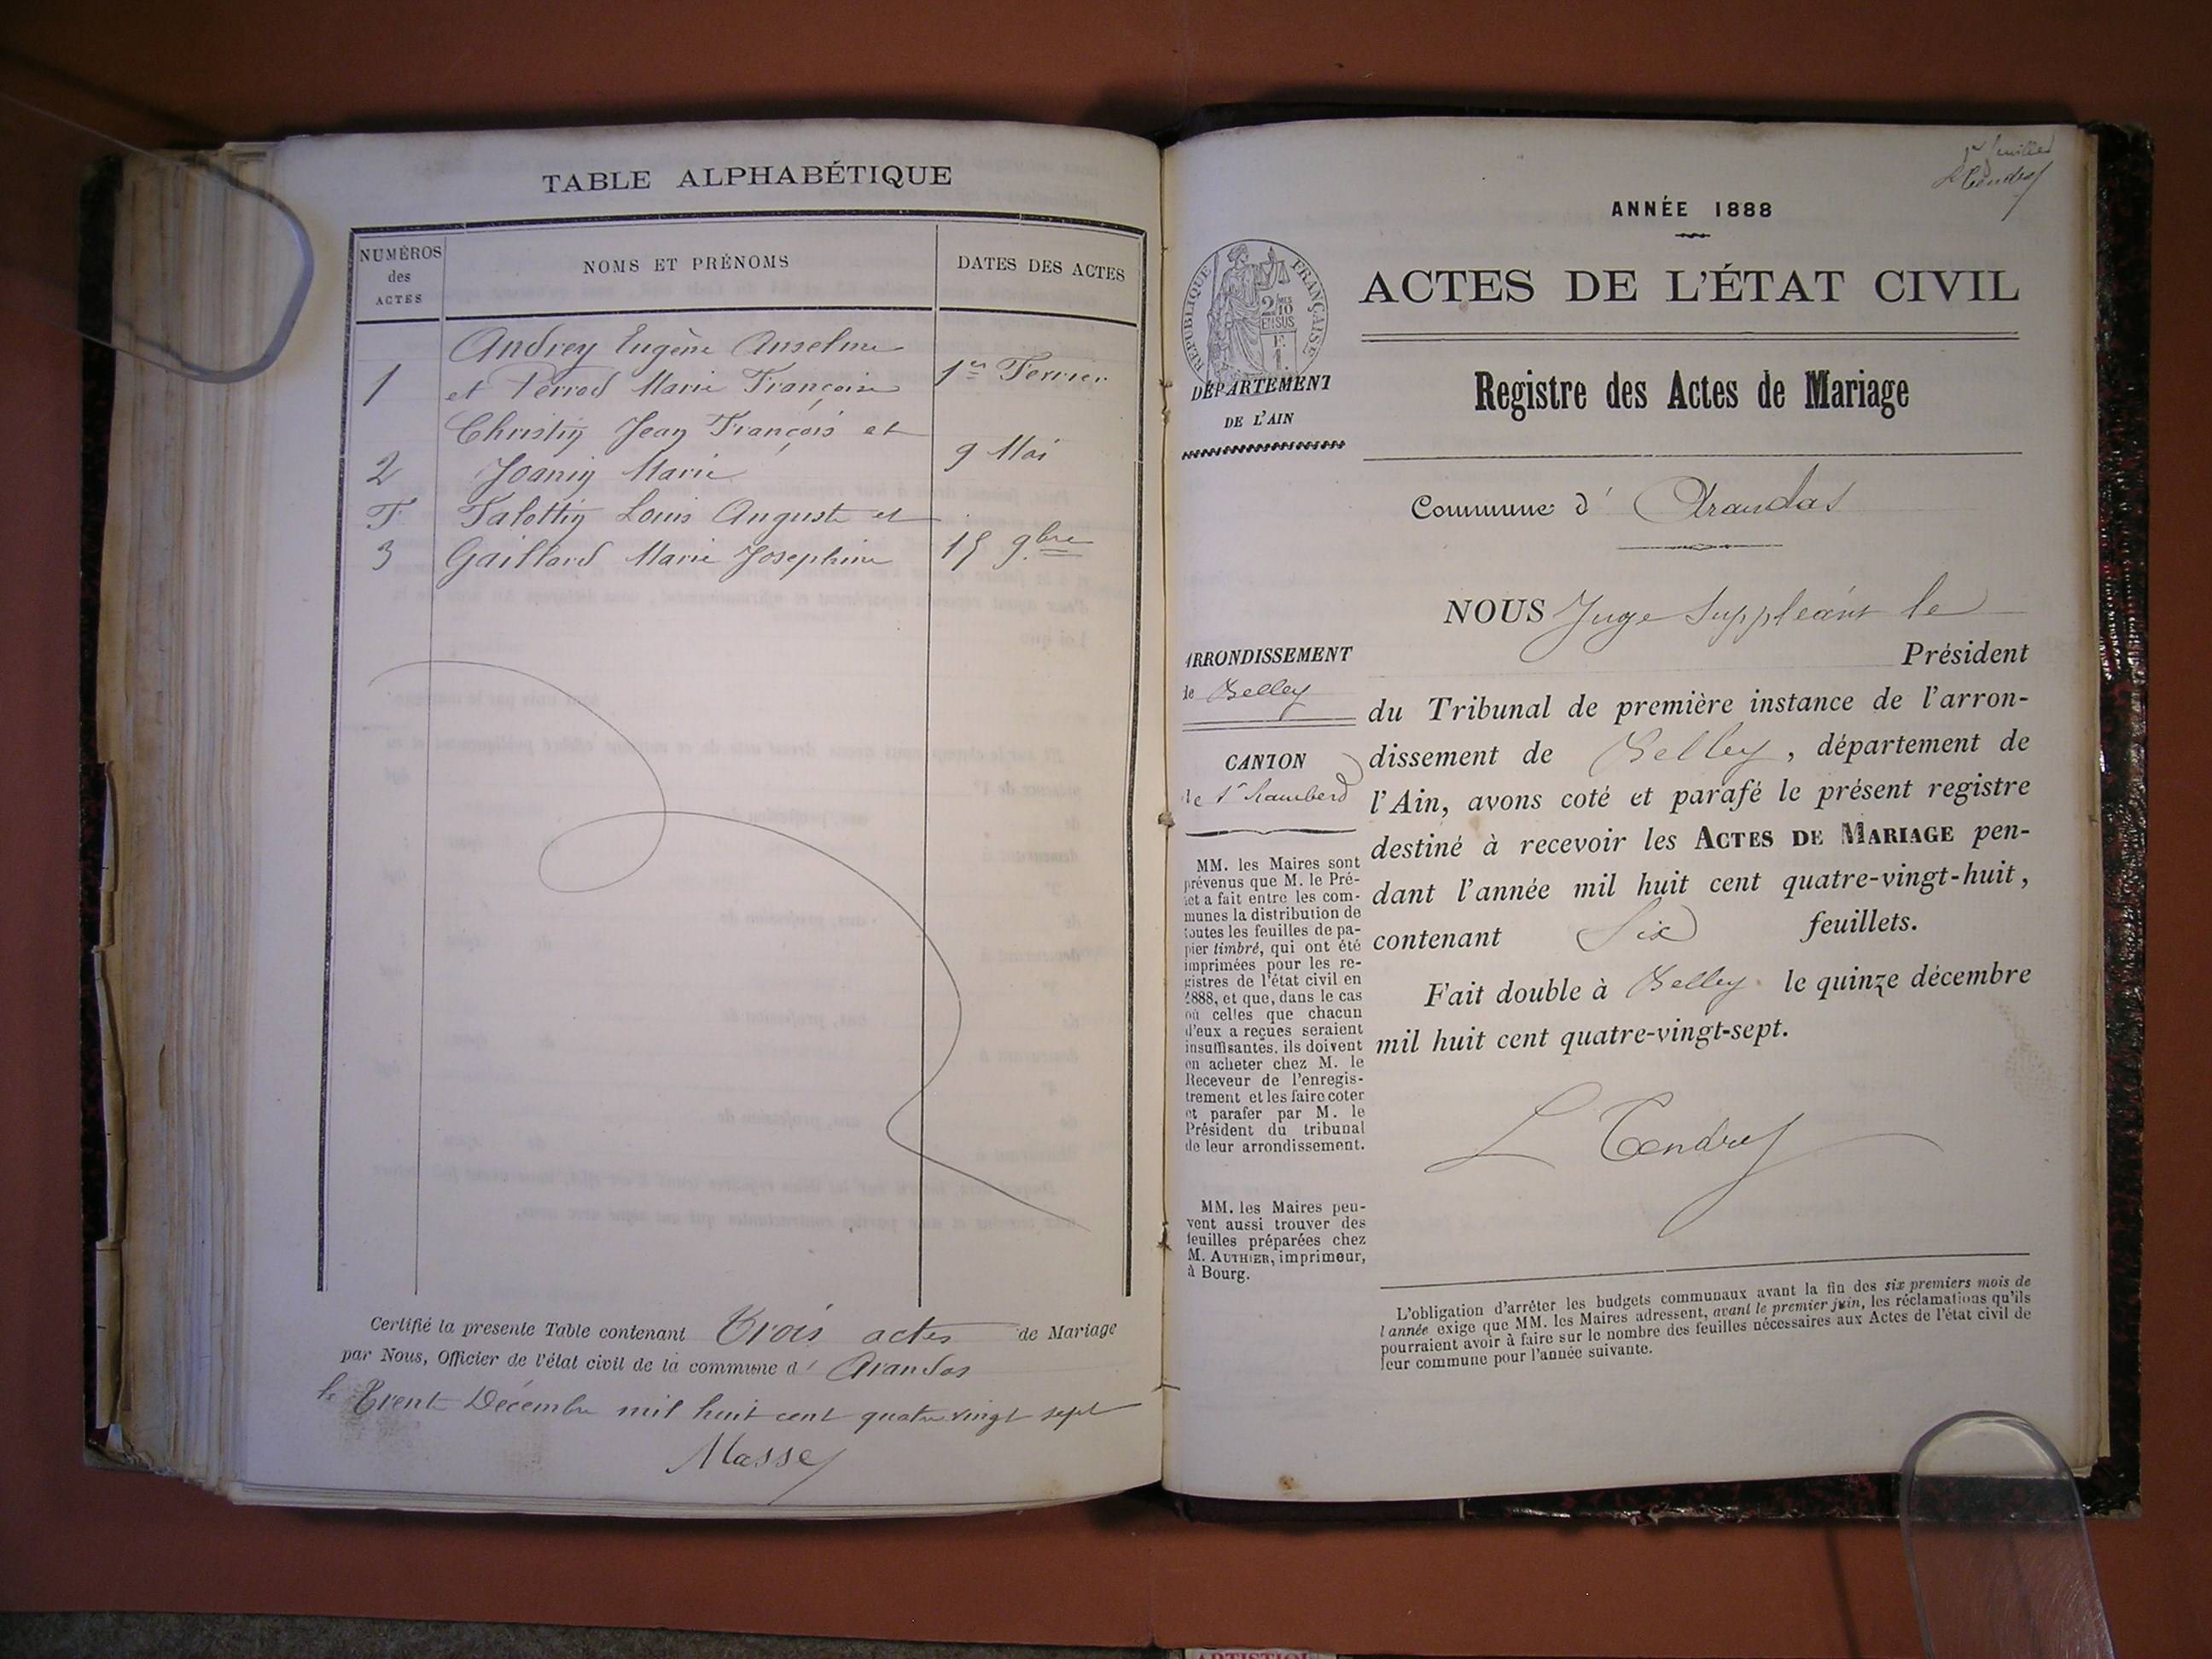 TABLE ALPHABÉTIQUE
NUMÉROS
des
ACTES
NOMS ET PRÉNOMS
DATES DES ACTES
Andrey Eugène Anselme
1 et Perrod Marie Françoise 1er Fevrier
Christin Jean François et
2 Joanin Marie 9 Mai
T Talottin Louis Auguste et
3 Gaillard Marie Josephine 15 9bre
Certifié la presente Table contenant Trois actes de Mariage
par Nous, Officier de l'état civil de la commune d' Arandas
le Trent Décembre mil huit cent quatre vingt sept
Masse
1er feuillet
L Tendret
ANNÉE 1888
RÉPUBLIQUE FRANÇAISE
2/10 EN SUS
DÉPARTEMENT
DE L'AIN
ACTES DE L'ÉTAT CIVIL
Registre des Actes de Mariage
Commune d' Arandas
NOUS Juge Suppléant le
Président
du Tribunal de première instance de l'arron-
dissement de Belley, département de
l'Ain, avons coté et parafé le présent registre
destiné à recevoir les ACTES DE MARIAGE pen-
dant l'année mil huit cent quatre-vingt-huit,
contenant Six feuillets.
Fait double à Belley le quinze décembre
mil huit cent quatre-vingt-sept.
L Tendret
ARRONDISSEMENT
de Belley
CANTON
de St Rambert
MM. les Maires sont
prévenus que M. le Pré-
fet a fait entre les com-
munes la distribution de
toutes les feuilles de pa-
pier timbré, qui ont été
imprimées pour les re-
gistres de l'état civil en
1888, et que, dans le cas
où celles que chacun
d'eux a reçues seraient
insuffisantes, ils doivent
en acheter chez M. le
Receveur de l'enregis-
trement et les faire coter
et parafer par M. le
Président du tribunal
de leur arrondissement.
MM. les Maires peu-
vent aussi trouver des
feuilles préparées chez
M. AUTHIER, imprimeur,
à Bourg.
L'obligation d'arrêter les budgets communaux avant la fin des six premiers mois de
l'année exige que MM. les Maires adressent, avant le premier juin, les réclamations qu'ils
pourraient avoir à faire sur le nombre des feuilles nécessaires aux Actes de l'état civil de
leur commune pour l'année suivante.